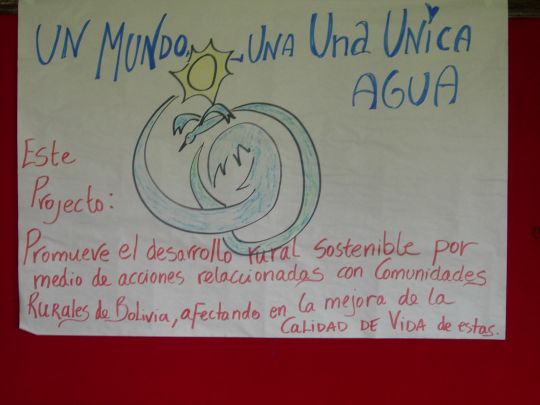 UN MUNDO, UNA Una UNICA
AGUA
Este
Projecto:
Promueve el desarrollo rural sostenible por
medio de acciones relaccionadas con Comunidades
Rurales de Bolivia, afectando en la mejora de la
CALIDAD DE VIDA de estas.